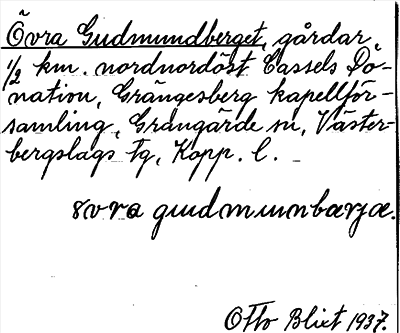 Övra Gudmundberget, gårdar
1/2 km. nordnordöst Cassels Do-
nation, Grängesberg kapellför-
samling, Grangärde sn, Väster-
bergslags tg, Kopp. l.
övra gudmunbærjæ.
Otto Blixt 1937.